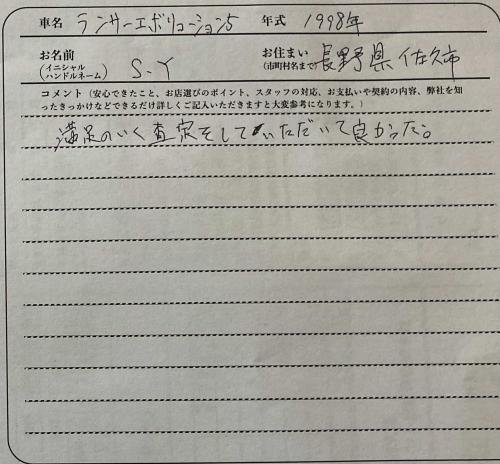 車名 ランサーエボリューション5 年式 1998年
お名前 お住まい 長野県佐久市
(イニシャル S.Y (市町村名まで)
ハンドルネーム)
コメント(安心できたこと、お店選びのポイント、スタッフの対応、お支払いや契約の内容、弊社を知
ったきっかけなどできるだけ詳しくご記入いただきますと大変参考になります。)
満足のいく査定をしていただいて良かった。